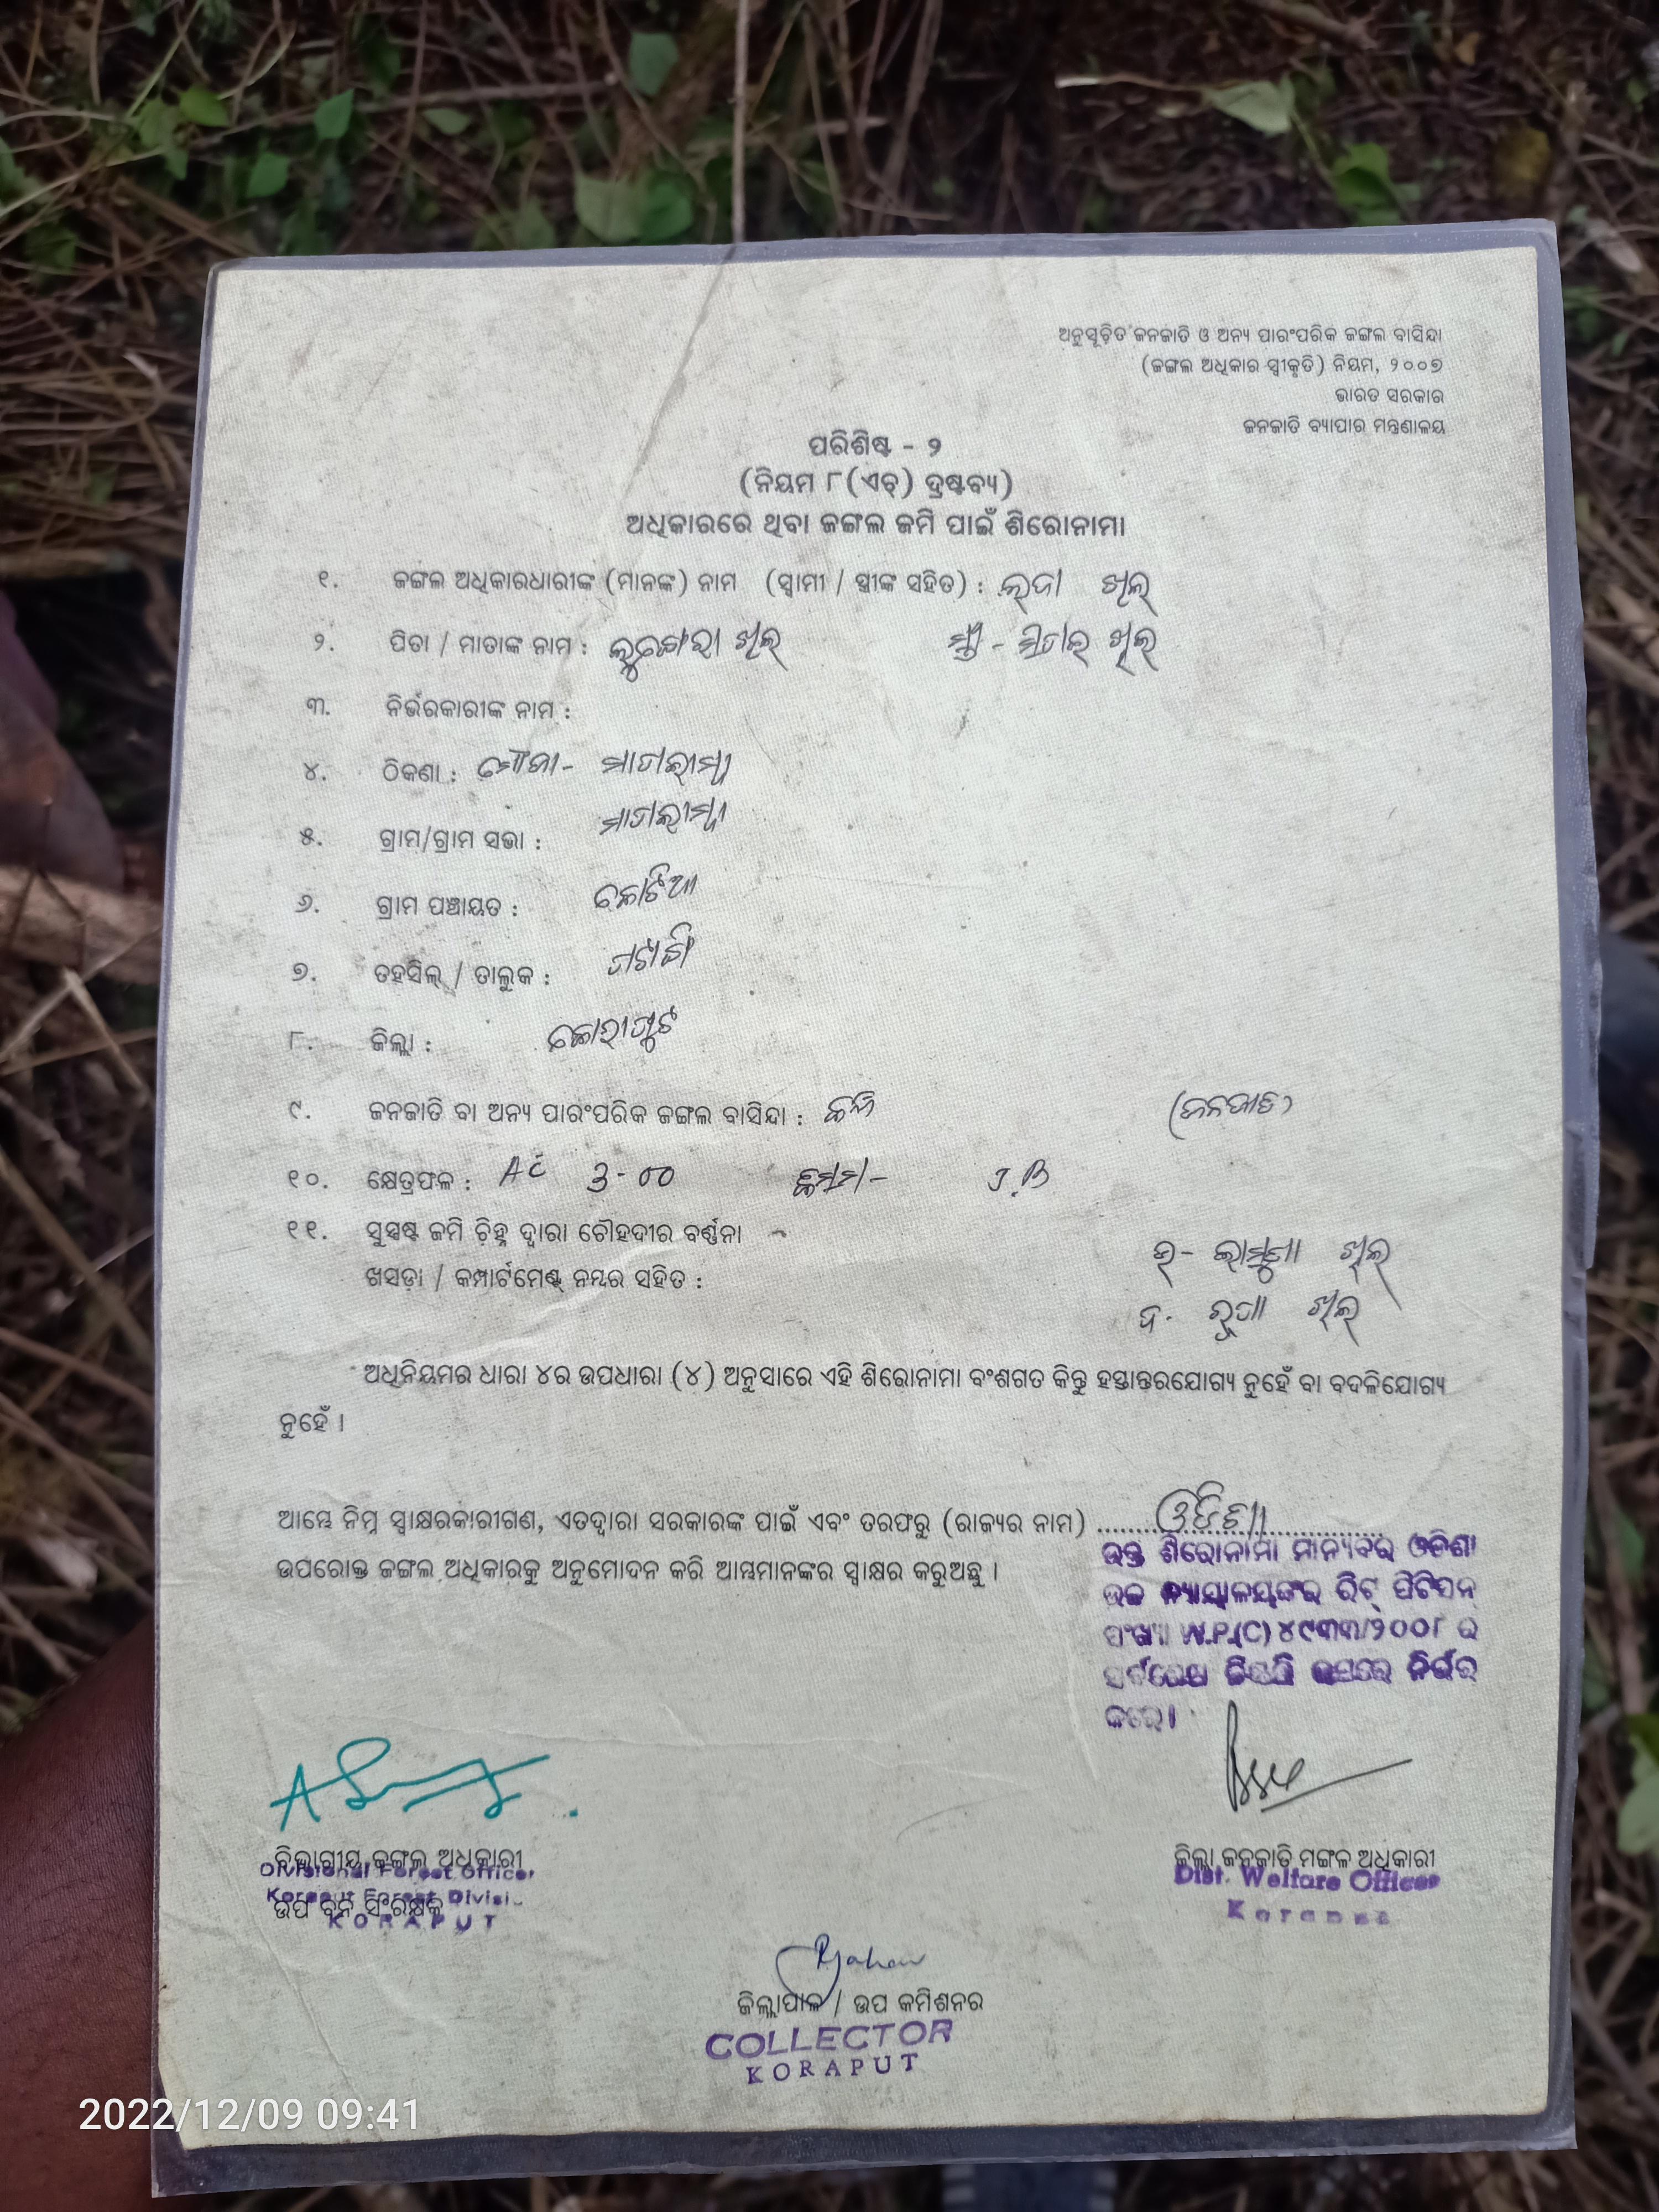 ଅନୁସୂଚିତ ଜନଜାତି ଓ ଅନ୍ୟ ପାରଂପରିକ ଜଙ୍ଗଲ ବାସିନ୍ଦା
(ଜଙ୍ଗଲ ଅଧିକାର ସ୍ୱୀକୃତି) ନିୟମ, ୨୦୦୭
ଭାରତ ସରକାର
ଜନଜାତି ବ୍ୟାପାର ମନ୍ତ୍ରଣାଳୟ
ପରିଶିଷ୍ଟ - ୨
(ନିୟମ ୮(ଏଚ୍) ଦ୍ରଷ୍ଟବ୍ୟ)
ଅଧିକାରରେ ଥିବା ଜଙ୍ଗଲ ଜମି ପାଇଁ ଶିରୋନାମା
୧. ଜଙ୍ଗଲ ଅଧିକାରଧାରୀଙ୍କ (ମାନଙ୍କ) ନାମ (ସ୍ୱାମୀ / ସ୍ତ୍ରୀଙ୍କ ସହିତ) : ଖିଲ୍
୨. ପିତା / ମାତାଙ୍କ ନାମ : ଖିଲ୍ ସ୍ତ୍ରୀ - ଖିଲ୍
୩. ନିର୍ଭରକାରୀଙ୍କ ନାମ :
୪. ଠିକଣା : ମୌଜା -
୫. ଗ୍ରାମ/ଗ୍ରାମ ସଭା :
୬. ଗ୍ରାମ ପଞ୍ଚାୟତ : କୋଟିଆ
୭. ତହସିଲ୍ / ତାଲୁକ :
୮. ଜିଲ୍ଲା : କୋରାପୁଟ
୯. ଜନଜାତି ବା ଅନ୍ୟ ପାରଂପରିକ ଜଙ୍ଗଲ ବାସିନ୍ଦା : (ଜନଜାତି)
୧୦. କ୍ଷେତ୍ରଫଳ : AC 3-00 କିସମ - J.B
୧୧. ସୁସ୍ପଷ୍ଟ ଜମି ଚିହ୍ନ ଦ୍ୱାରା ଚୌହଦୀର ବର୍ଣ୍ଣନା
ଖସଡ଼ା / କମ୍ପାର୍ଟମେଣ୍ଟ ନମ୍ବର ସହିତ :
ଉ- ଖିଲ୍
ଦ- ଖିଲ୍
ଅଧିନିୟମର ଧାରା ୪ର ଉପଧାରା (୪) ଅନୁସାରେ ଏହି ଶିରୋନାମା ବଂଶଗତ କିନ୍ତୁ ହସ୍ତାନ୍ତରଯୋଗ୍ୟ ନୁହେଁ ବା ବଦଳିଯୋଗ୍ୟ
ନୁହେଁ ।
ଆମ୍ଭେ ନିମ୍ନ ସ୍ୱାକ୍ଷରକାରୀଗଣ, ଏତଦ୍ୱାରା ସରକାରଙ୍କ ପାଇଁ ଏବଂ ତରଫରୁ (ରାଜ୍ୟର ନାମ) ଓଡିଶା
ଉପରୋକ୍ତ ଜଙ୍ଗଲ ଅଧିକାରକୁ ଅନୁମୋଦନ କରି ଆମ୍ଭମାନଙ୍କର ସ୍ୱାକ୍ଷର କରୁଅଛୁ ।
ଉକ୍ତ ଶିରୋନାମା ମାନ୍ୟବର ଓଡିଶା
ଉଚ୍ଚ ନ୍ୟାୟାଳୟଙ୍କର ରିଟ୍ ପିଟିସନ୍
ସଂଖ୍ୟା W.P.(C) ୪୯୩୩/୨୦୦୮ ର
ଉପରେ ନିର୍ଭର
କରେ।
ବିଭାଗୀୟ ଜଙ୍ଗଲ ଅଧିକାରୀ
Divisional Forest Officer
Koraput Forest
ଉପ ବନ ସଂରକ୍ଷକ
KORAPUT
ଜିଲ୍ଲା ଜନଜାତି ମଙ୍ଗଳ ଅଧିକାରୀ
Dist. Welfare Officer
Koraput
ଜିଲ୍ଲାପାଳ / ଉପ କମିଶନର
COLLECTOR
KORAPUT
2022/12/09 09:41